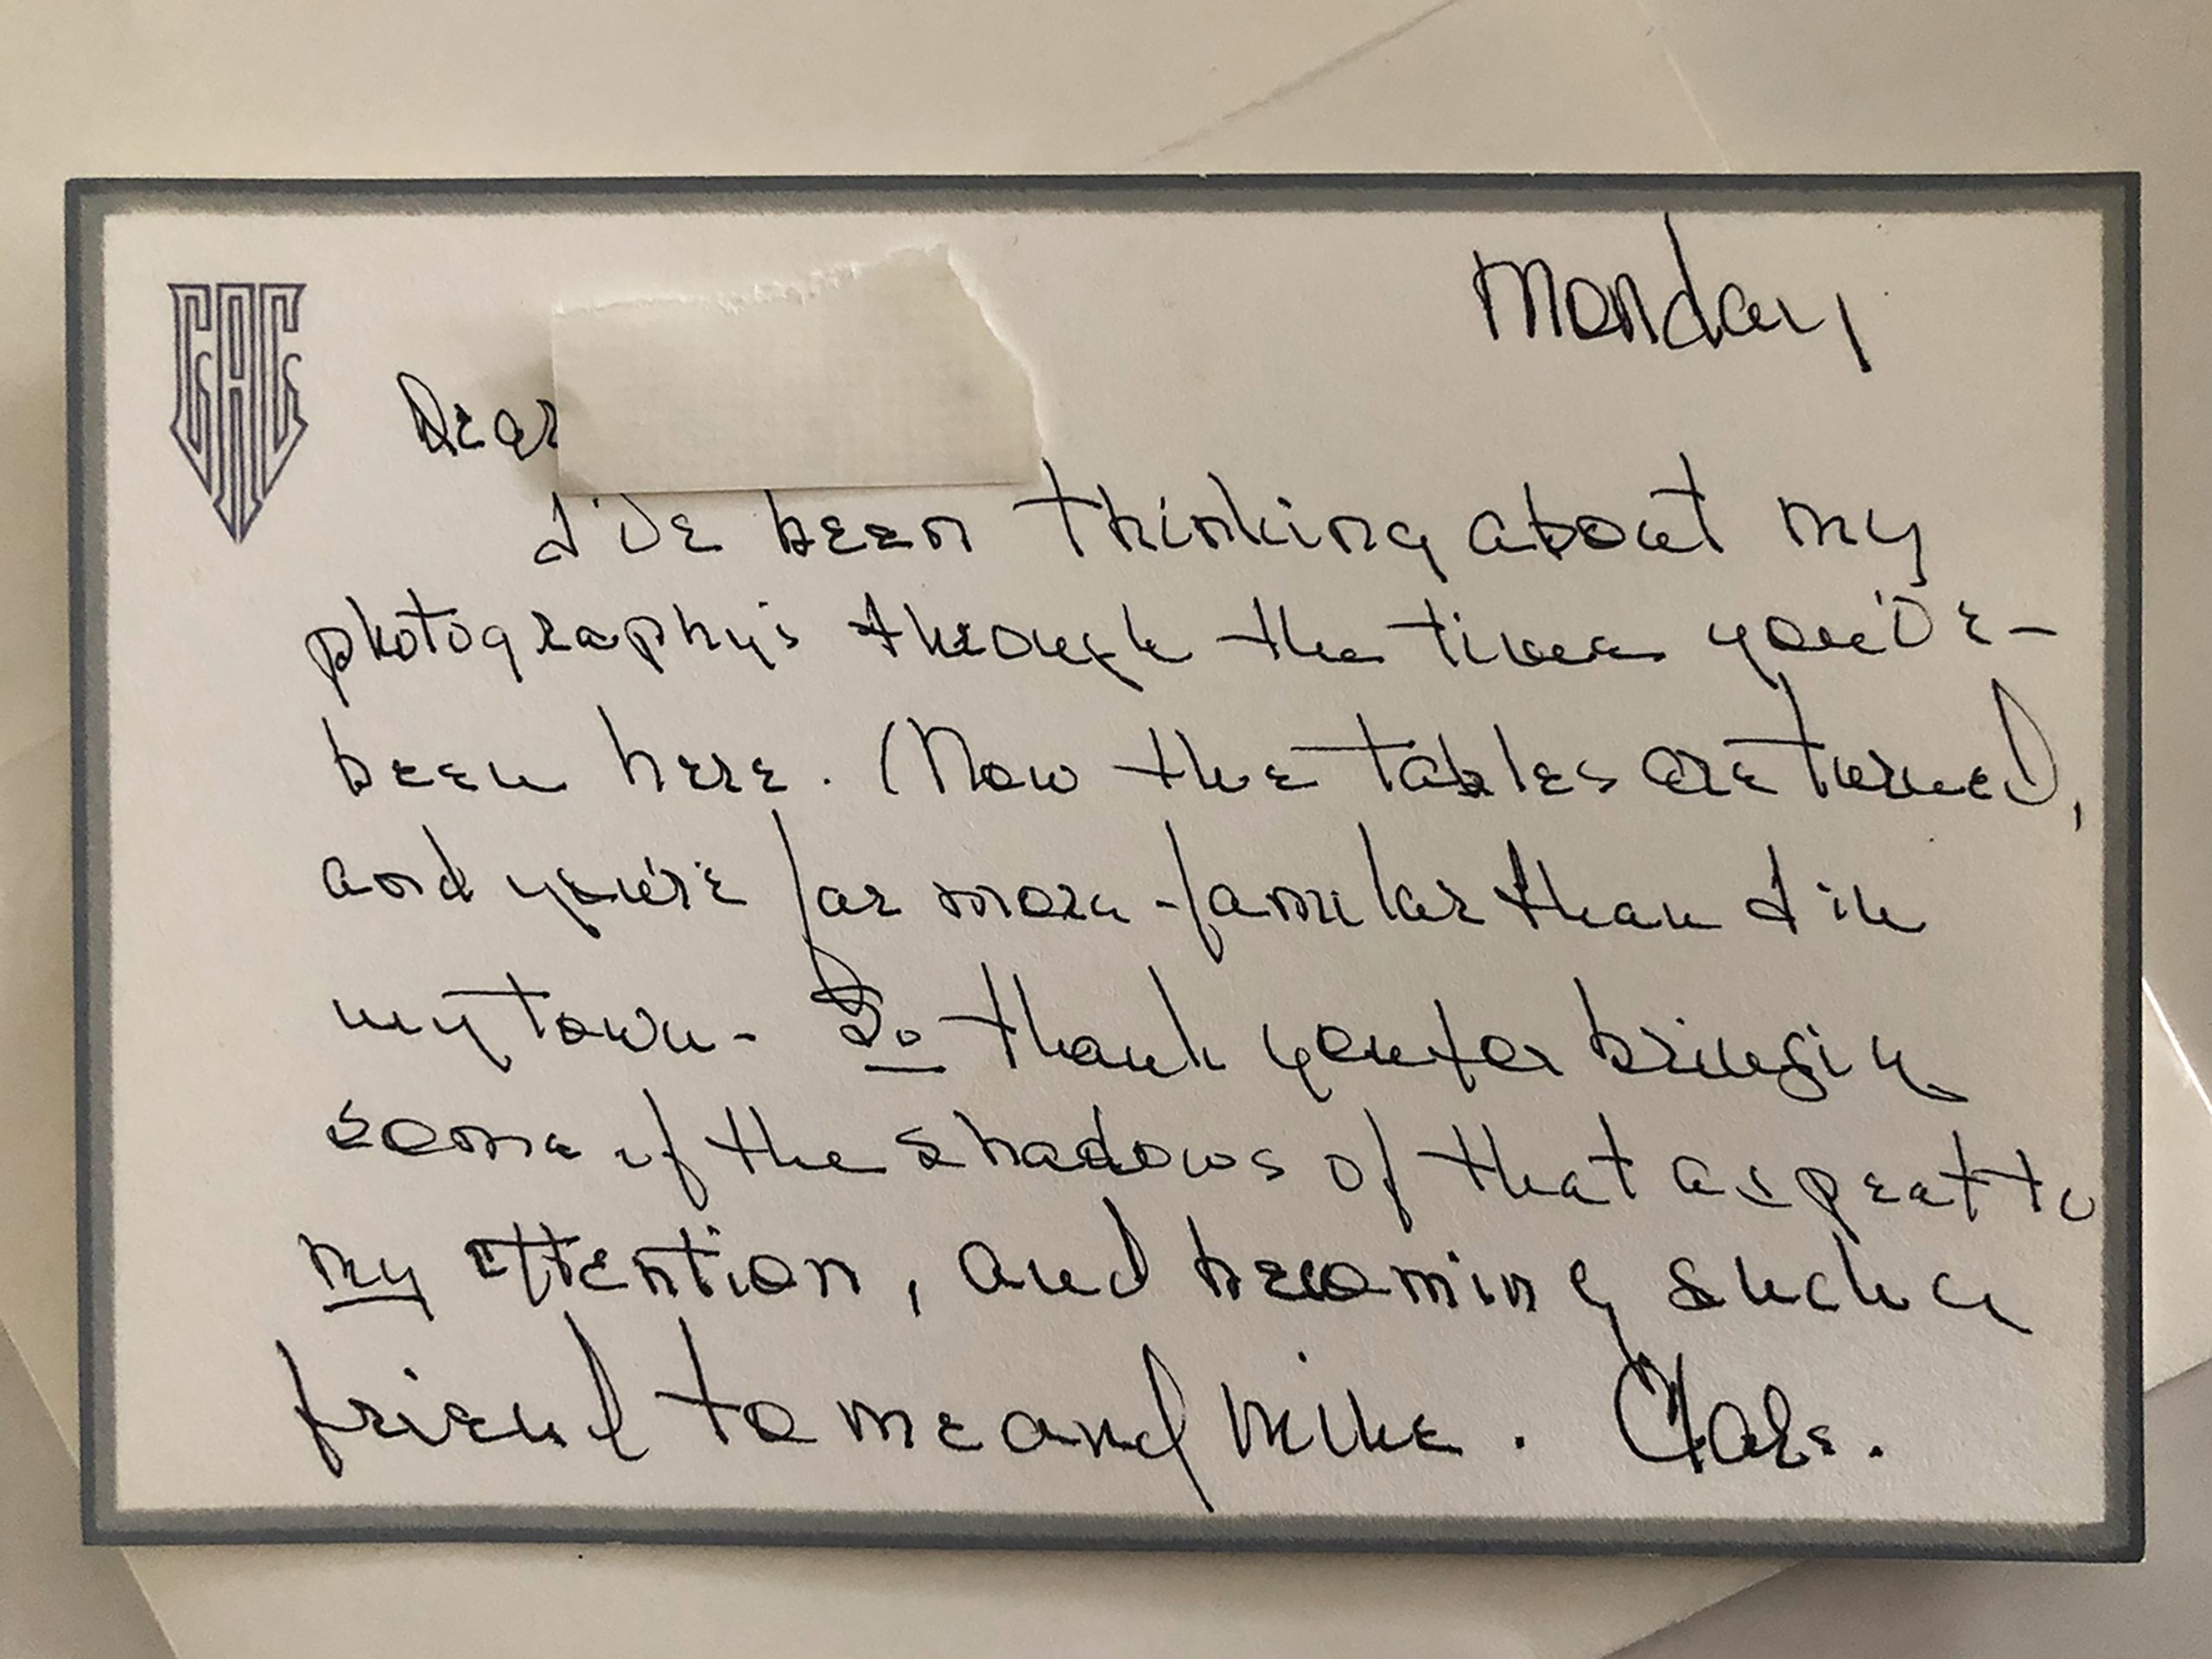 Monday
Dear
I've been thinking about my
photography's through the times you've -
been here. (Now the tables are turned,
and you're far more familar than I in
my town - So thank you for bringing
some of the shadows of that aspect to
my attention, and becoming such a
friend to me and Mike.